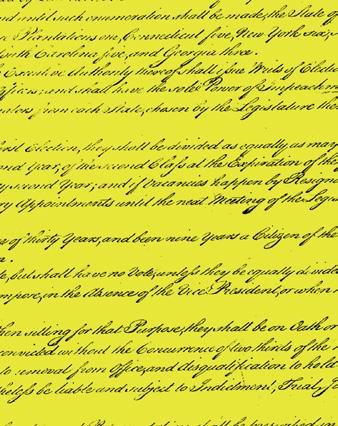 and until such enumeration shall be made, the State of
Plantations one, Connecticut five, New York six,
South Carolina five, and Georgia three.
Executive Authority thereof shall issue Writs of Electi
Officers; and shall have the sole Power of Impeachm
from each State, chosen by the Legislature the
first Election, they shall be divided as equally as may
Year, of the second Class at the Expiration of the
second Year; and if Vacancies happen by Resigna
Appointments until the next Meeting of the Legis
of thirty Years, and been nine Years a Citizen of the
but shall have no Vote, unless they be equally divided
tempore, in the Absence of the Vice President, or when
When sitting for that Purpose, they shall be on Oath or
convicted without the Concurrence of two thirds of the
to removal from Office, and disqualification to hold
be liable and subject to Indictment, Trial, J
shall be prescribed in